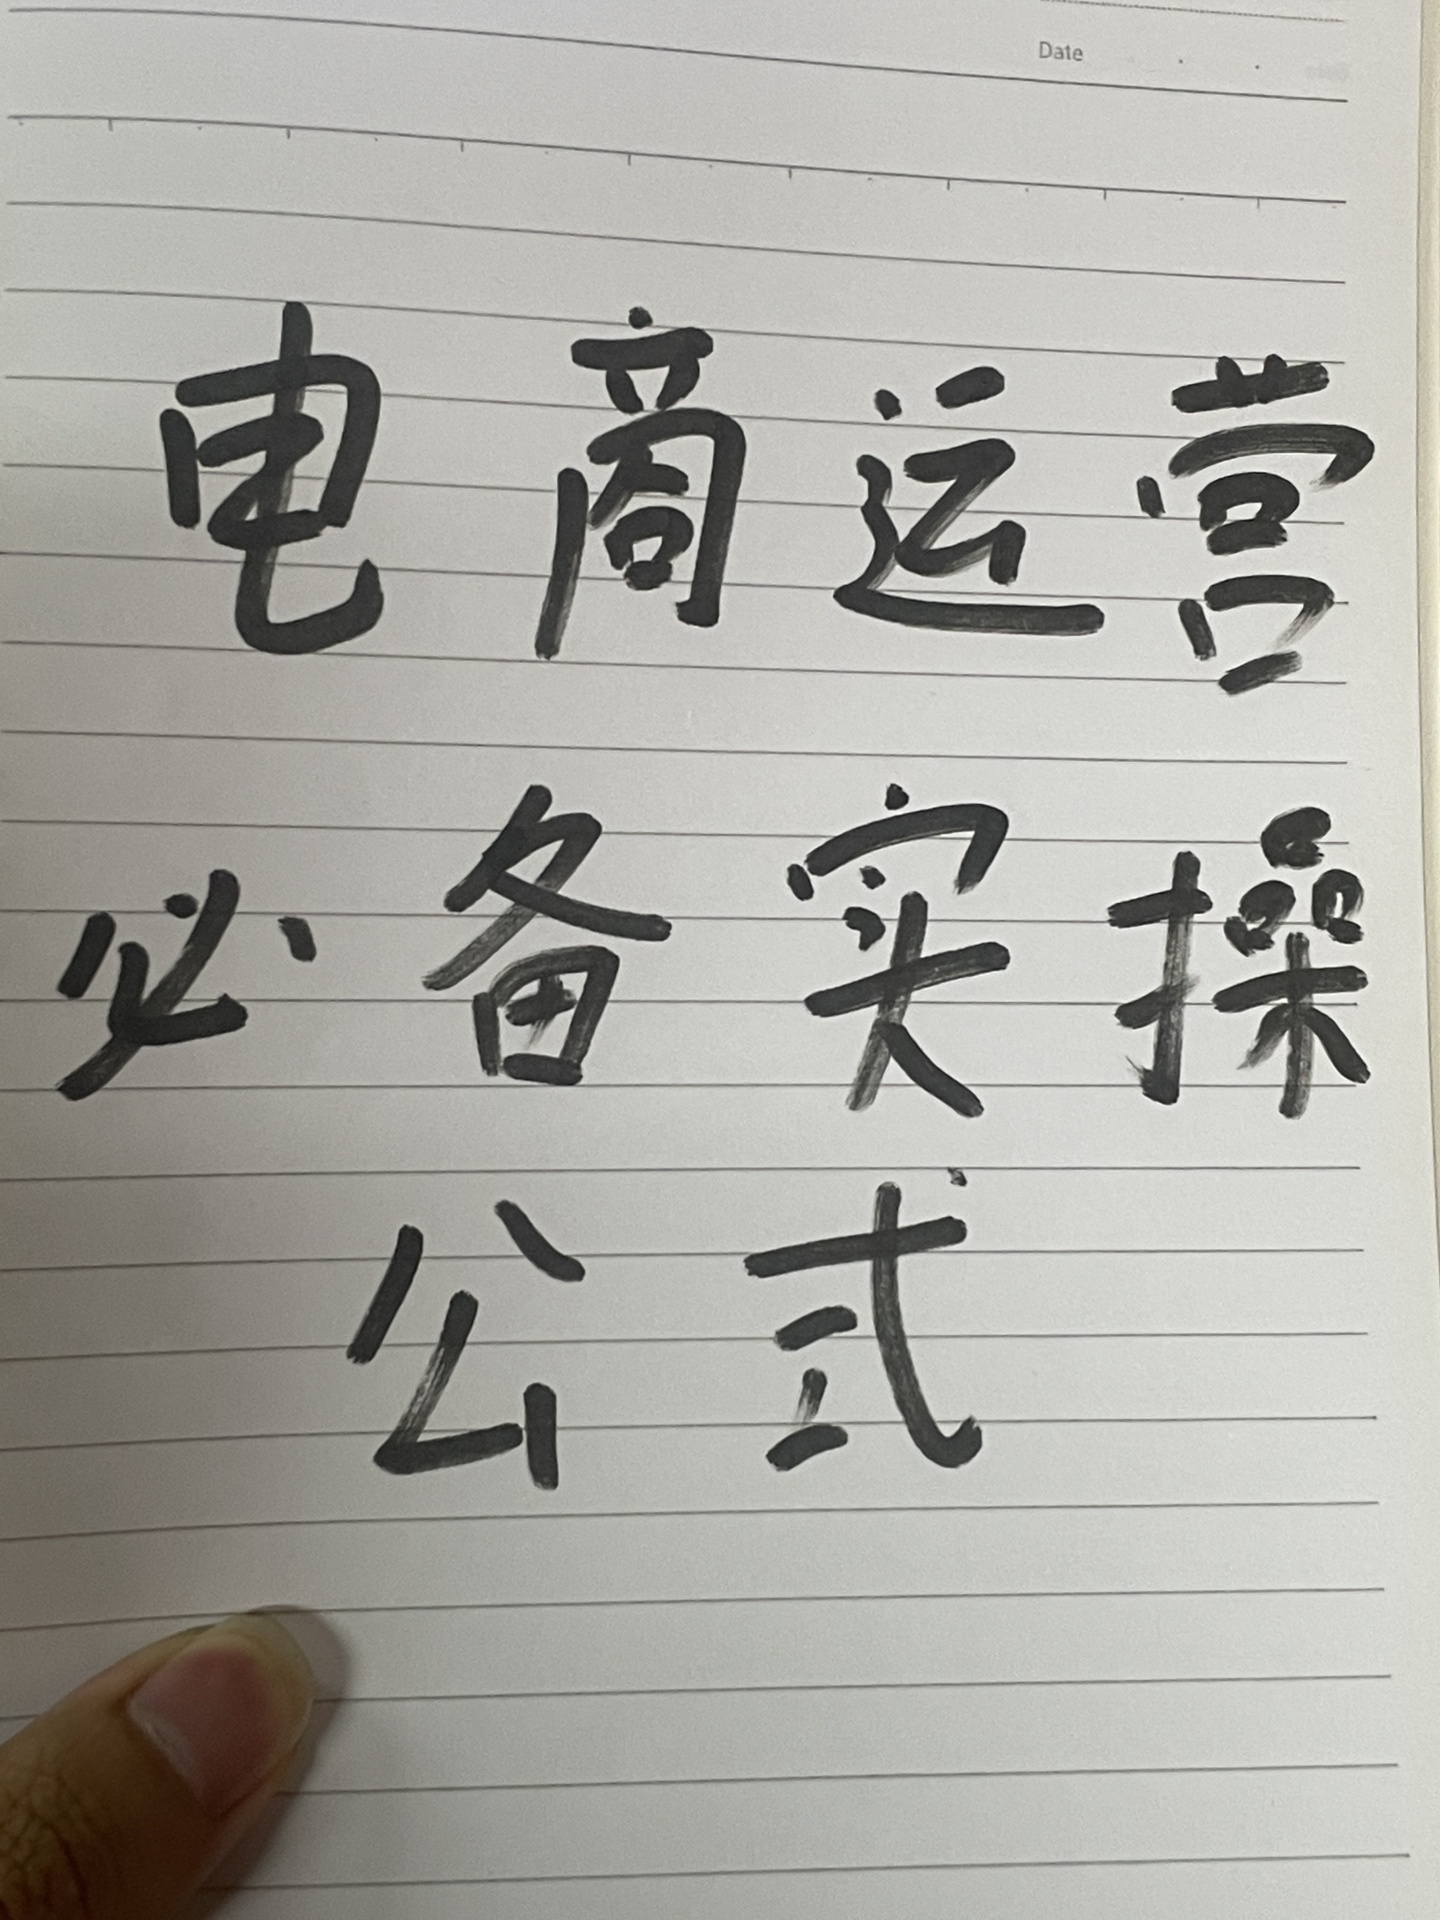 Date
电商运营
必备实操
公式